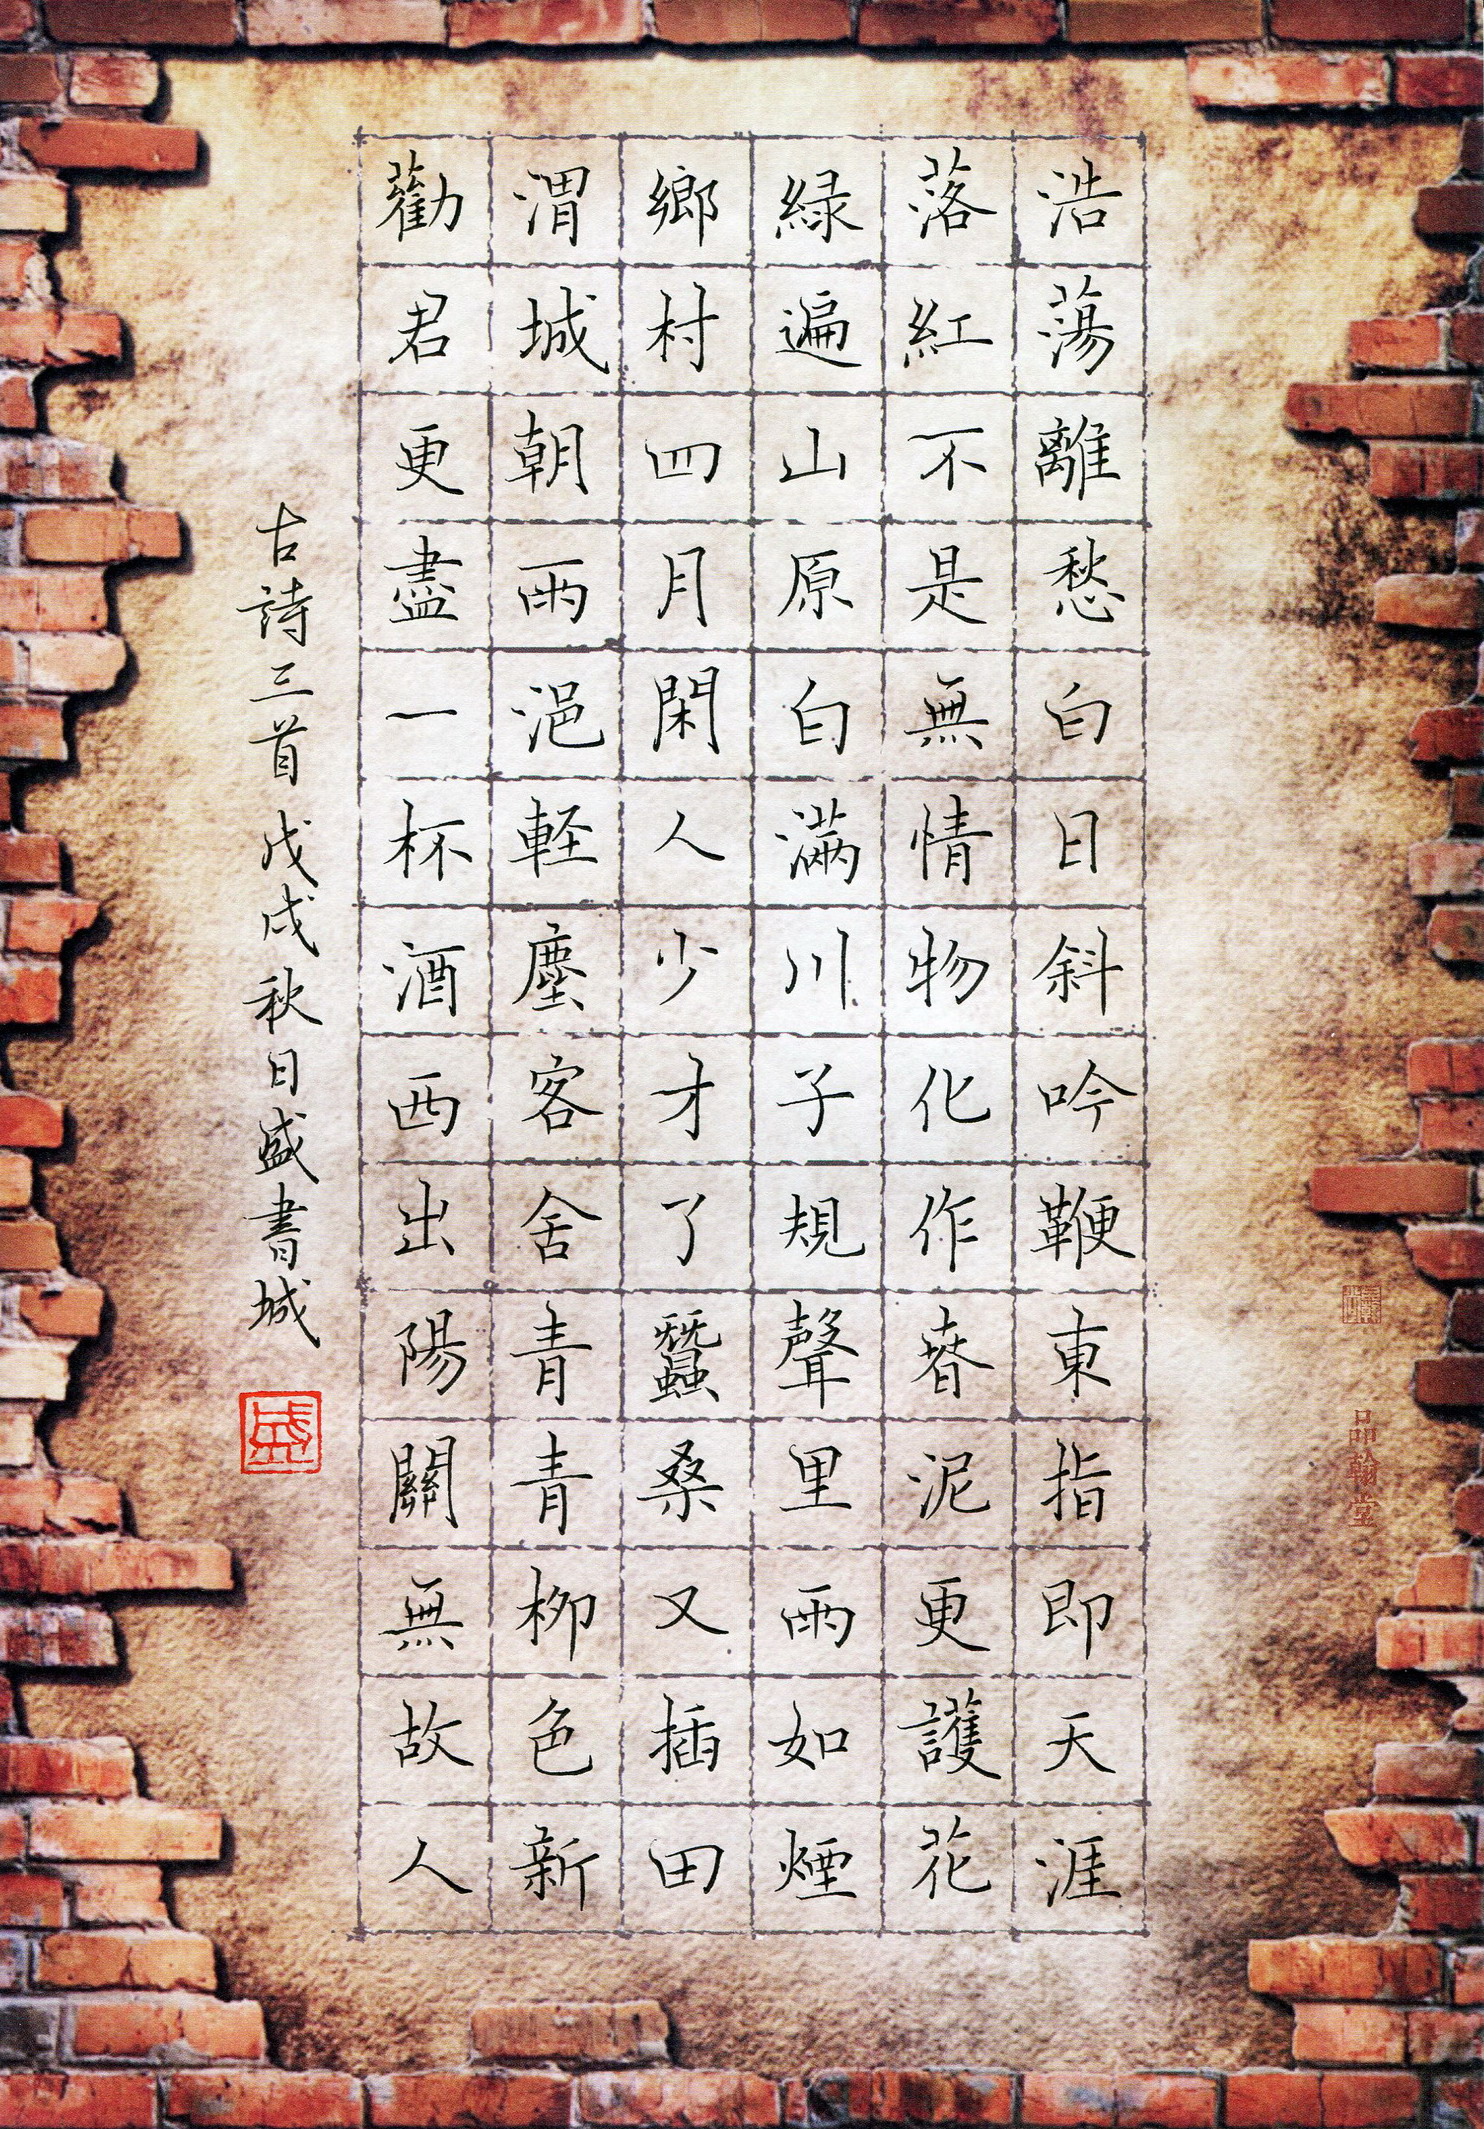 浩蕩離愁白日斜吟鞭東指即天涯
落紅不是無情物化作春泥更護花
緑遍山原白滿川子規聲里雨如煙
鄉村四月閑人少才了蠶桑又插田
渭城朝雨浥軽塵客舍青青柳色新
勸君更盡一杯酒西出陽關無故人
古詩三首戊戌秋日盛書城
盛
品翰堂